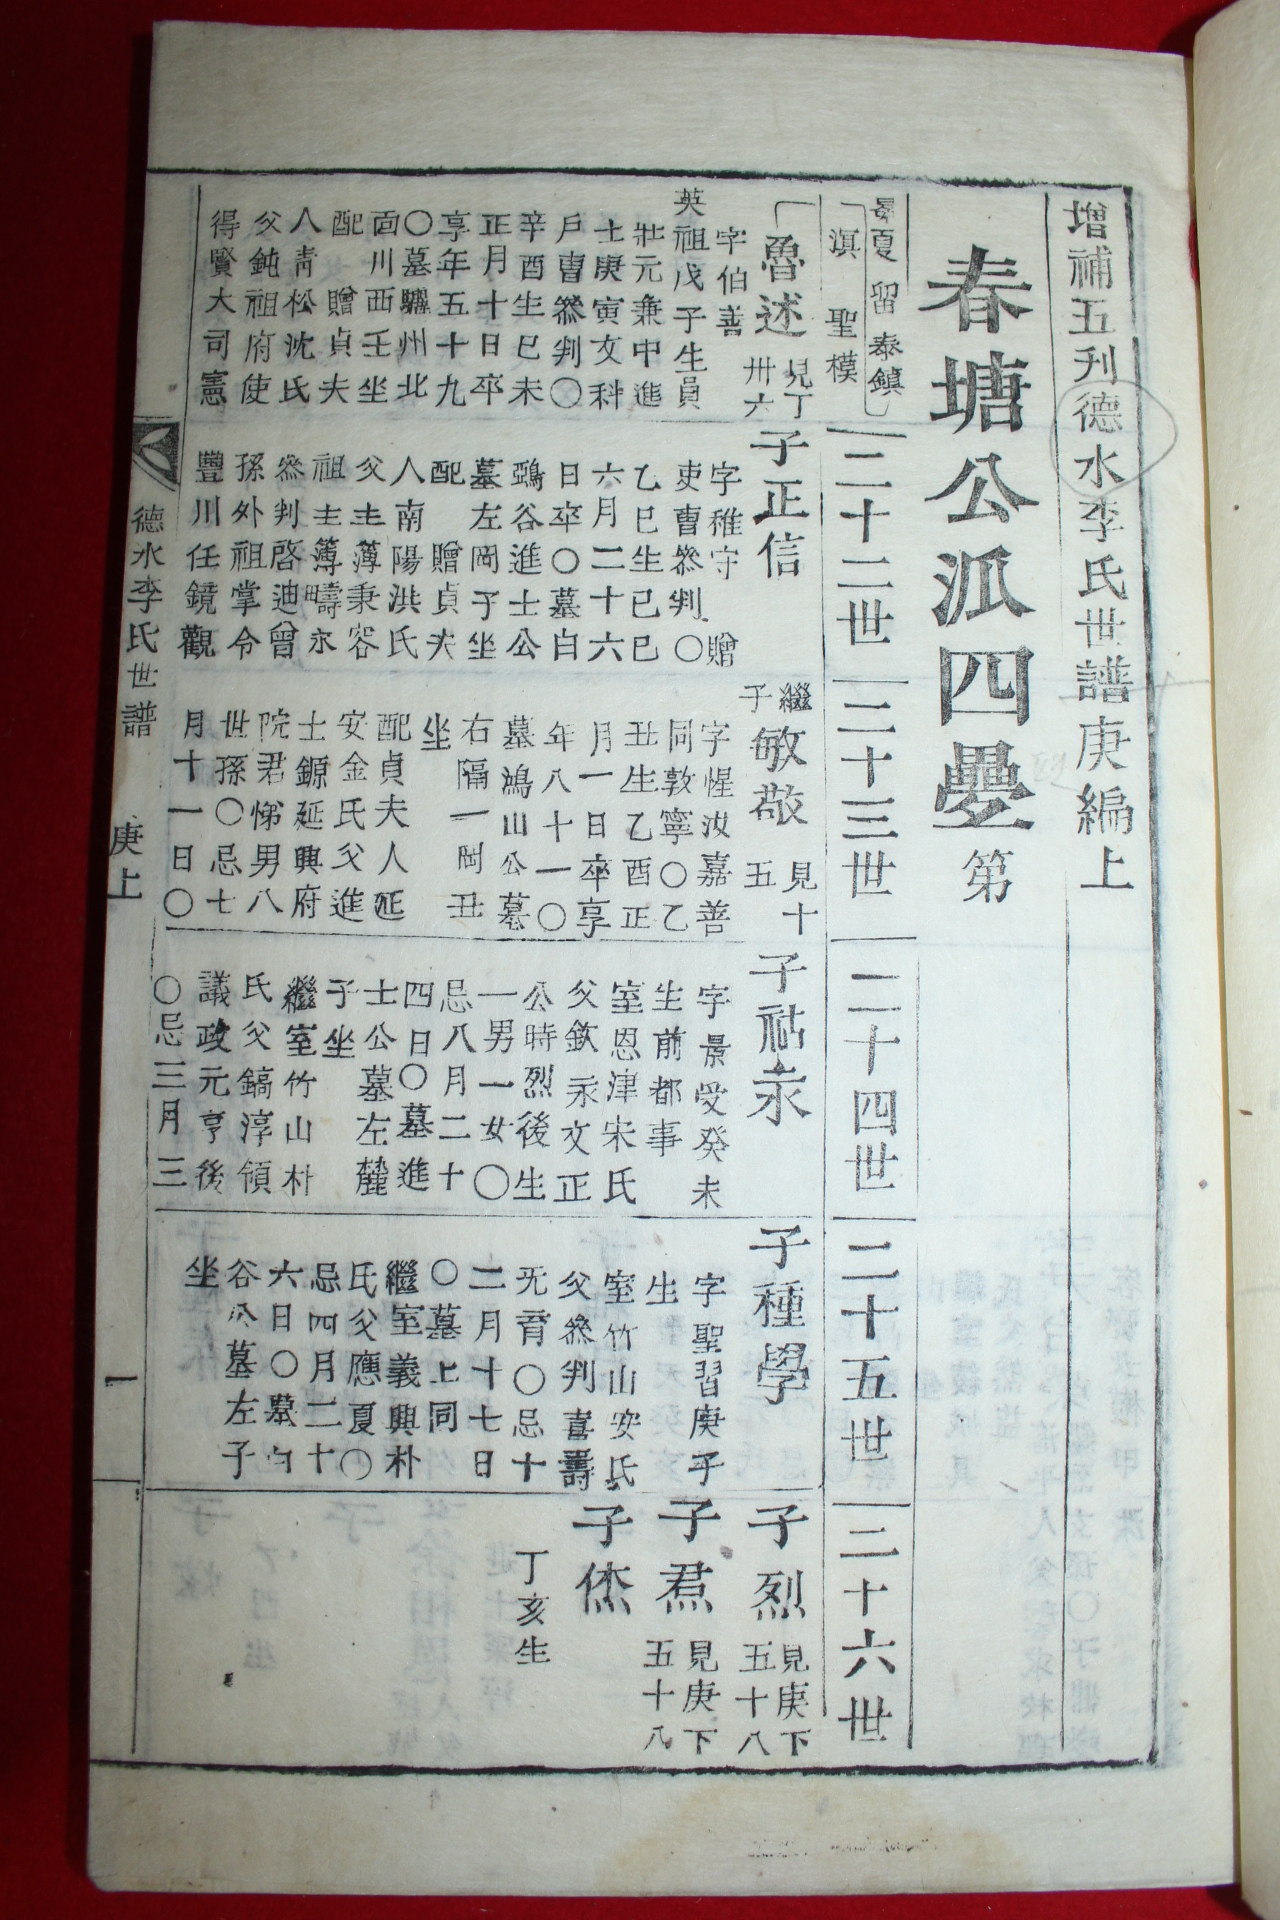 增補五刊德水李氏世譜庚編上
春塘公派四疊第
夏 留 泰鎮
淇 聖模
二十二世
二十三世
二十四世
二十五世
二十六世
魯述
見丁
卅六
字伯善
英祖戊子生員
壯元兼中進
士庚寅文科
戶曹參判〇
辛酉生已未
正月十日卒
享年五十九
〇墓驪州北
面川西壬坐
配 贈貞夫
人靑松沈氏
父鈍祖府使
得賢大司憲
子正信
字稚守 贈
吏曹參判〇
乙巳生已巳
六月二十六
日卒〇墓白
鵶谷進士公
墓左岡子坐
配 贈貞夫
人南陽洪氏
父主薄秉容
祖主簿疇永
參判啓迪曾
孫外祖掌令
豐川任鏡觀
繼
子
敏敬
見十
五
字惺汝嘉善
同敦寧〇乙
丑生乙酉正
月一日卒享
年八十一〇
墓鴻山公墓
右隔一岡丑
坐
配貞夫人延
安金氏父進
士鎯延興府
院君悌男八
世孫〇忌七
月十一日〇
子祜永
字景受癸未
生前都事
室恩津宋氏
父欽永文正
公時烈後生
一男一女〇
忌八月二十
四日〇墓進
士公墓左麓
子坐
繼室竹山朴
氏父鎬淳領
議政元亨後
〇忌三月三
子種學
字聖習庚子
生
室竹山安氏
父參判喜壽
无育〇忌十
二月十七日
〇墓上同
繼室義興朴
氏父應夏〇
忌四月二十
六日〇墓白
谷公墓左子
坐
子烈
見庚下
五十八
子焄
見庚下
五十八
子烋
丁亥生
德水李氏世譜 庚上 一